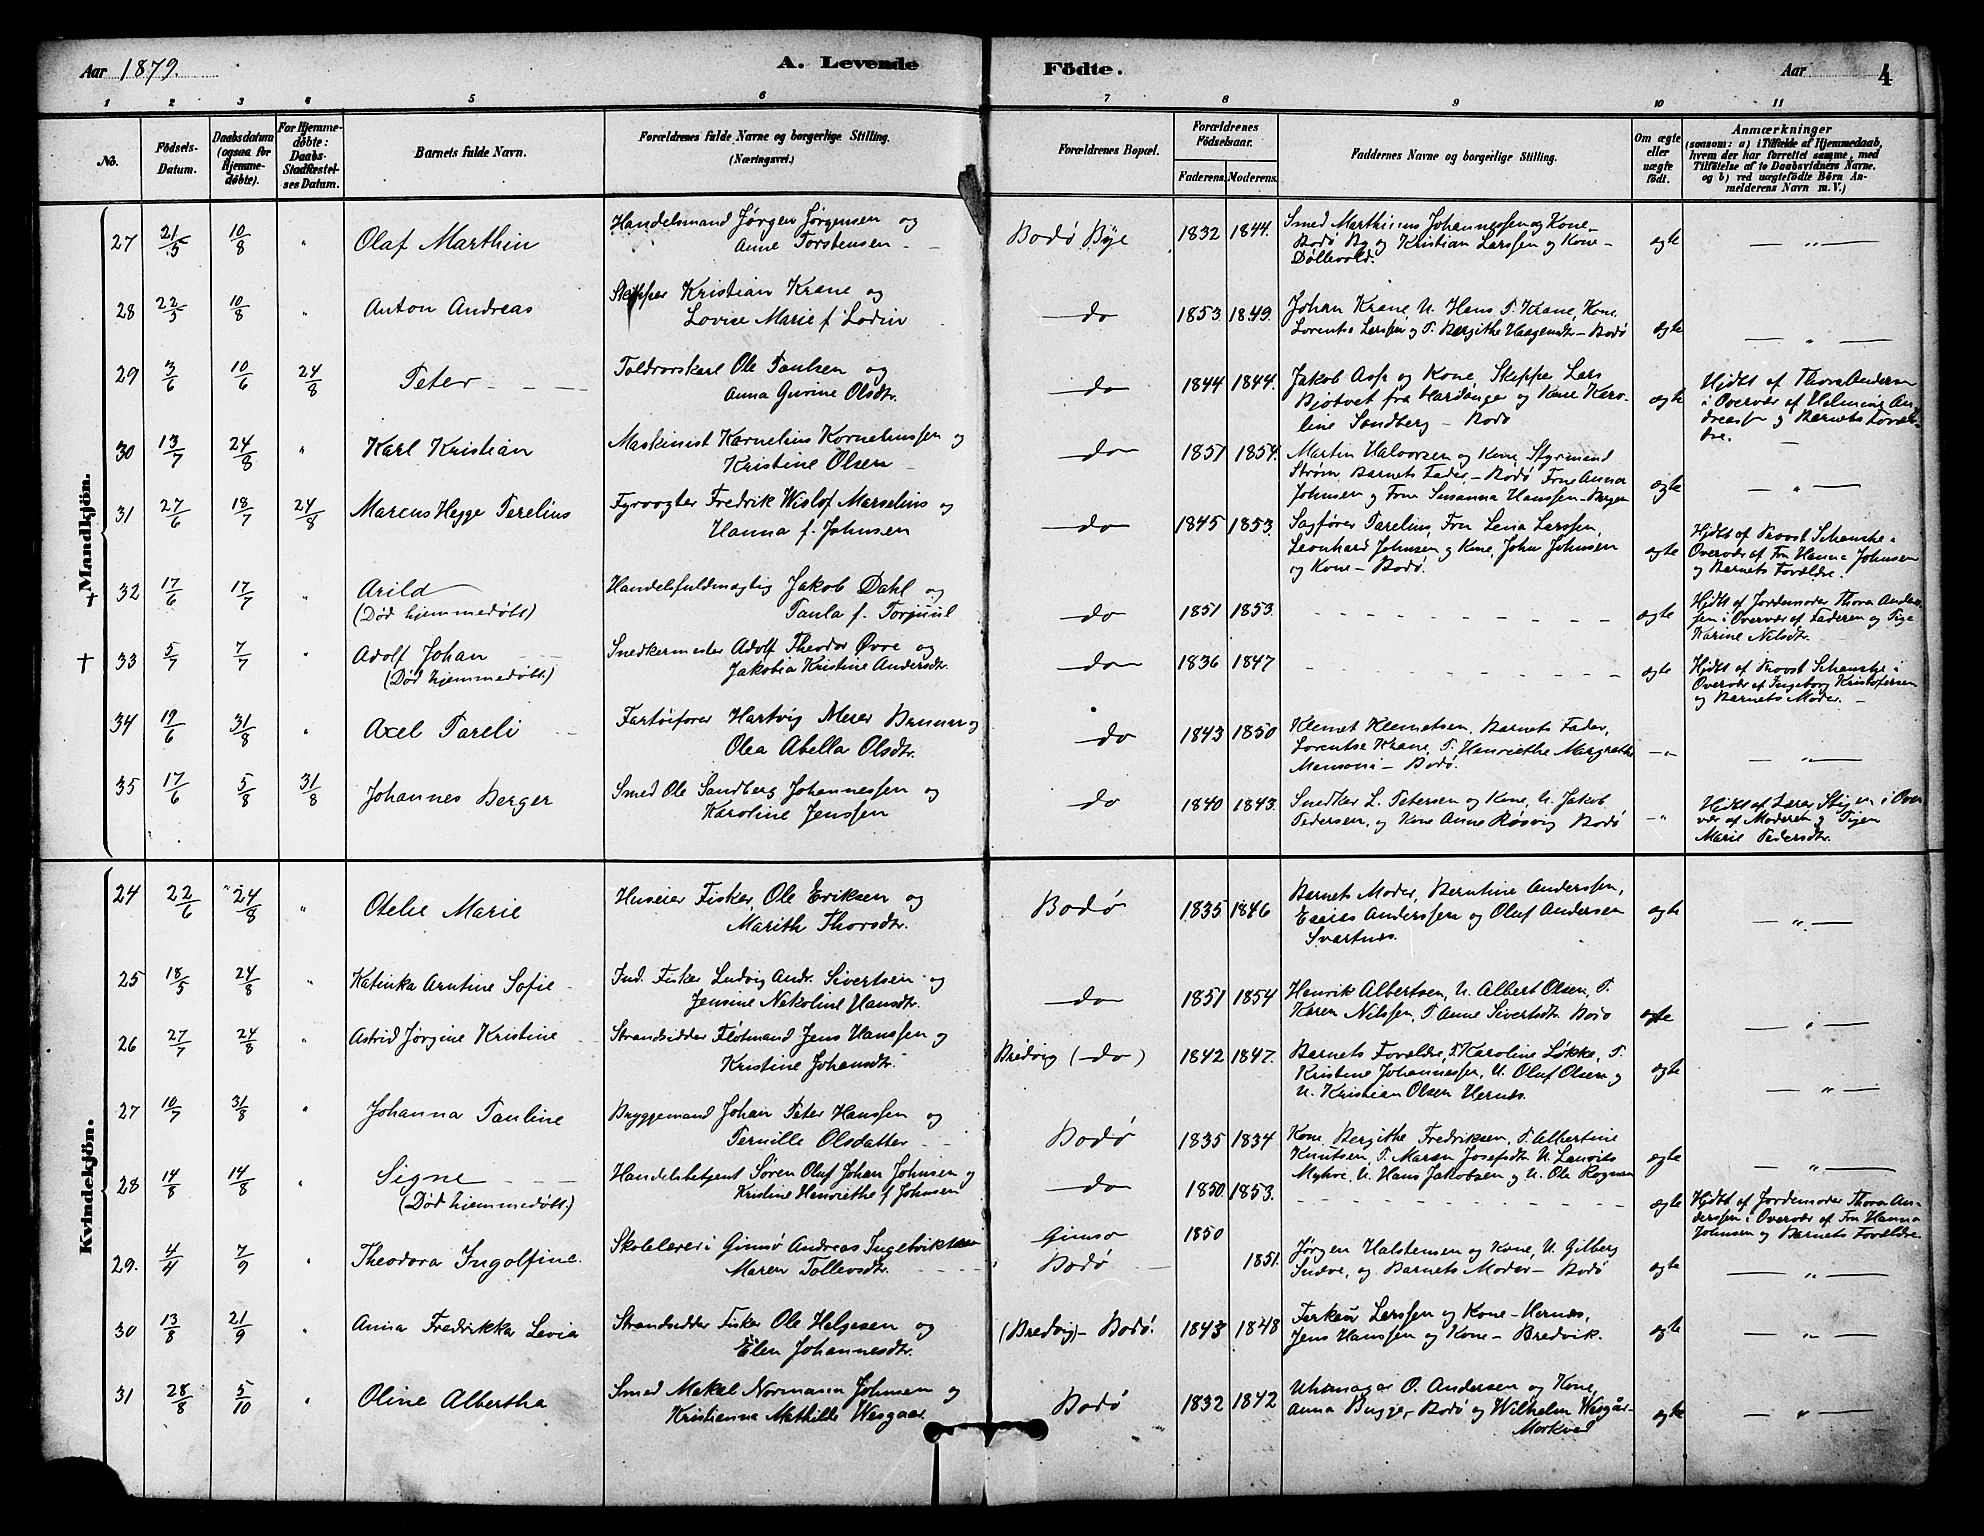 Aar 1879.
A. Levende
Födte.
Aar
4
1 2 3 4 5 6 7 8 9 10 11
No.
Födsels-
Datum.
Daabsdatum
(ogsaa for
Hjemme-
døbte).
For Hjemme-
døbte:
Daabs-
Stadfæstel-
ses Datum.
Barnets fulde Navn.
Forældrenes fulde Navne og borgerlige Stilling.
(Næringsvei.)
Forældrenes Bopæl.
Forældrenes
Födselsaar.
Faderens. Moderens.
Faddernes Navne og borgerlige Stilling.
Om ægte
eller
uægte
födt.
Anmærkninger
(saasom: a) i Tilfælde af Hjemmedaab,
hvem der har forrettet samme, med
Tilföielse af to Daabsvidners Navne.
og b) ved uægtefödte Börn An-
melderens Navn m. V.)
Mandkjön.
27 21/5 10/8 " Olaf Marthin
Handelsmand Jørgen Jørgensen og
Anne Torstensen
Bodø Bye 1832 1844.
Smed Marthinus Johannessen og Kone
Bodø By og Kristian Larssen og Kone
ægte — " —
28 22/5 10/8 " Anton Andreas
Skipper Kristian Krane og
Lovise Marie f. Lodin
do 1853 1849.
Johan Krane, U. Hans P. Krane, Kone
Lorentse Larssen og P. Bergithe Haagensdtr. Bodø
ægte — " —
29 3/6 10/6 24/8 Peter
Toldrorskarl Ole Paulsen og
Anna Olsdtr.
do 1844 1844.
Jakob Asp og Kone, Skipper Lars
fra Hardanger og Kone Karo-
line Sandberg — Bodø
ægte
Hjdbt af Thora Andersen
i Overvær af Helmine An-
dreassen og Barnets Foræl-
dre.
30 13/7 24/8 " Karl Kristian
Maskinist Kornelius Korneliussen og
Kristine Olsen
do 1851 1854.
Martin Halvorsen og Kone, Styrmand
Strøm Barnets Fader — Bodø Frue Anna
Johnsen og Frue Susanna Hanssen — Bergen
ægte — " —
31 27/6 18/7 24/8 Marcus Hegge Perelius
Fyrvogter Fredrik Wisløf Marselius og
Hanna f. Johnsen
do 1845 1853.
Sagfører Parelius, Fru Lena Larssen,
Leonhard Johnsen og Kone, John Johnsen
og Kone — Bodø.
ægte
Hjdbt af Provst Schanche i
Overvær af Fru Hanna Johnsen
og Barnets Forældre.
† 32 17/6 17/7 " Arild
(Død hjemmedøbt)
Handelsfuldmægtig Jakob Dahl og
Paula f. Torjuul
do 1851 1853.
ægte
Hjdbt af Jordemoder Thora Ander-
sen i Overvær af Faderen og Pige
Karine Nilsdtr.
† 33 5/7 7/7 " Adolf Johan
(Død hjemmedøbt.)
Snedkermester Adolf Theodor Øvre og
Jakobia Kristine Andersdtr.
do 1836 1847
ægte
Hjdbt af Provst Schanche i
Overvær af Ingeborg Kristofersen
og Barnets Moder.
34 19/6 31/8 " Axel Pareli
Fartøifører Hartvig Meier og
Olea Abella Olsdtr.
do 1843 1850
Klemet Klemetsen, Barnets Fader,
Lorentse Krane, P. Henriethe Margrethe
— Bodø.
— " — — " —
35 17/6 5/8 31/8 Johannes Berger
Smed Ole Sandberg Johannessen og
Karoline Jenssen
do 1840 1843.
Snedker L. Petersen og Kone, U. Jakob
Pedersen, og Kone Anne Røsvig Bodø
— " —
Hjdbt af Lærer i Over-
vær af Moderen og Pigen
Marie Pedersdtr.
Kvindekjön.
24 22/6 24/8 " Otelie Marie
Huseier Fisker, Ole Eriksen og
Marith Thorsdtr.
Bodø 1835 1846
Barnets Moder, Berntine Anderssen,
Esaias Anderssen og Oluf Andersen
Svartnes.
ægte — " —
25 18/5 24/8 " Katinka Arntine Sofie
Ind. Fisker Ludvig Andr. Sivertsen og
Jensine Nekoline Hansdtr.
do 1851 1854
Henrik Albertsen, U. Albert Olsen, P.
Karen Nilssen, P. Anne Sivertsdtr Bodø
ægte — " —
26 27/7 24/8 " Astrid Jørgine Kristine
Strandsidder Fløtmand Jens Hanssen og
Kristine Johansdtr.
Bredvig (do) 1842 1847.
Barnets Forældre, P. Karoline Løkke, P.
Kristine Johannessen, U. Oluf Olsen og
U. Kristian Olsen Hernes.
ægte — " —
27 10/7 31/8 " Johanna Pauline
Bryggemand Johan Peter Hanssen og
Pernille Olsdatter
Bodø 1835 1834
Kone Bergithe Fredriksen, P. Albertine
Knutsen, P. Maren Josefsdtr U. Lauvits
U. Hans Jakobsen og U. Ole Rognan
ægte — " —
28 14/8 14/8 " Signe
(Død hjemmedøbt.)
Handelsbetjent Søren Oluf Johan Johnsen og
Kristine Henriethe f. Johnsen
do 1850 1853.
ægte
Hjdbt af Jordemoder Thora An-
derssen i Overvær af Fru Hanna
Johnsen og Barnets Forældre.
29. 4/4 7/9 " Theodora Ingolfine.
Skolelærer i Gimsø Andreas Ingebriktsen
Maren Tollevsdtr.
Gimsø 1850
Bodø 1851.
Jørgen Halstensen og Kone, U. Gilberg
og Barnets Moder — Bodø
ægte — " —
30 13/8 21/9 " Anna Fredrikka Levia
Strandsidder Fisker Ole Helgesen og
Elen Johannesdtr.
(Bredvig) — Bodø. 1843 1848
Larssen og Kone — Hernes,
Jens Hanssen og Kone — Bredvik.
ægte — " —
31 28/8 5/10 " Oline Albertha
Smed Mekal Normann Johnsen og
Kristianna Mathilde Wesgaar
Bodø 1832 1842
Uhrmager O. Andersen og Kone,
Anna Bugge, Bodø og Wilhelm Wesgår
Mørkved
ægte — " —